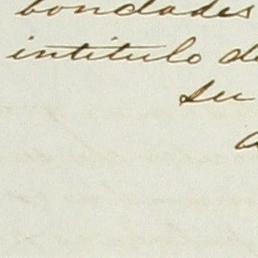 bondades
intitulo de
su